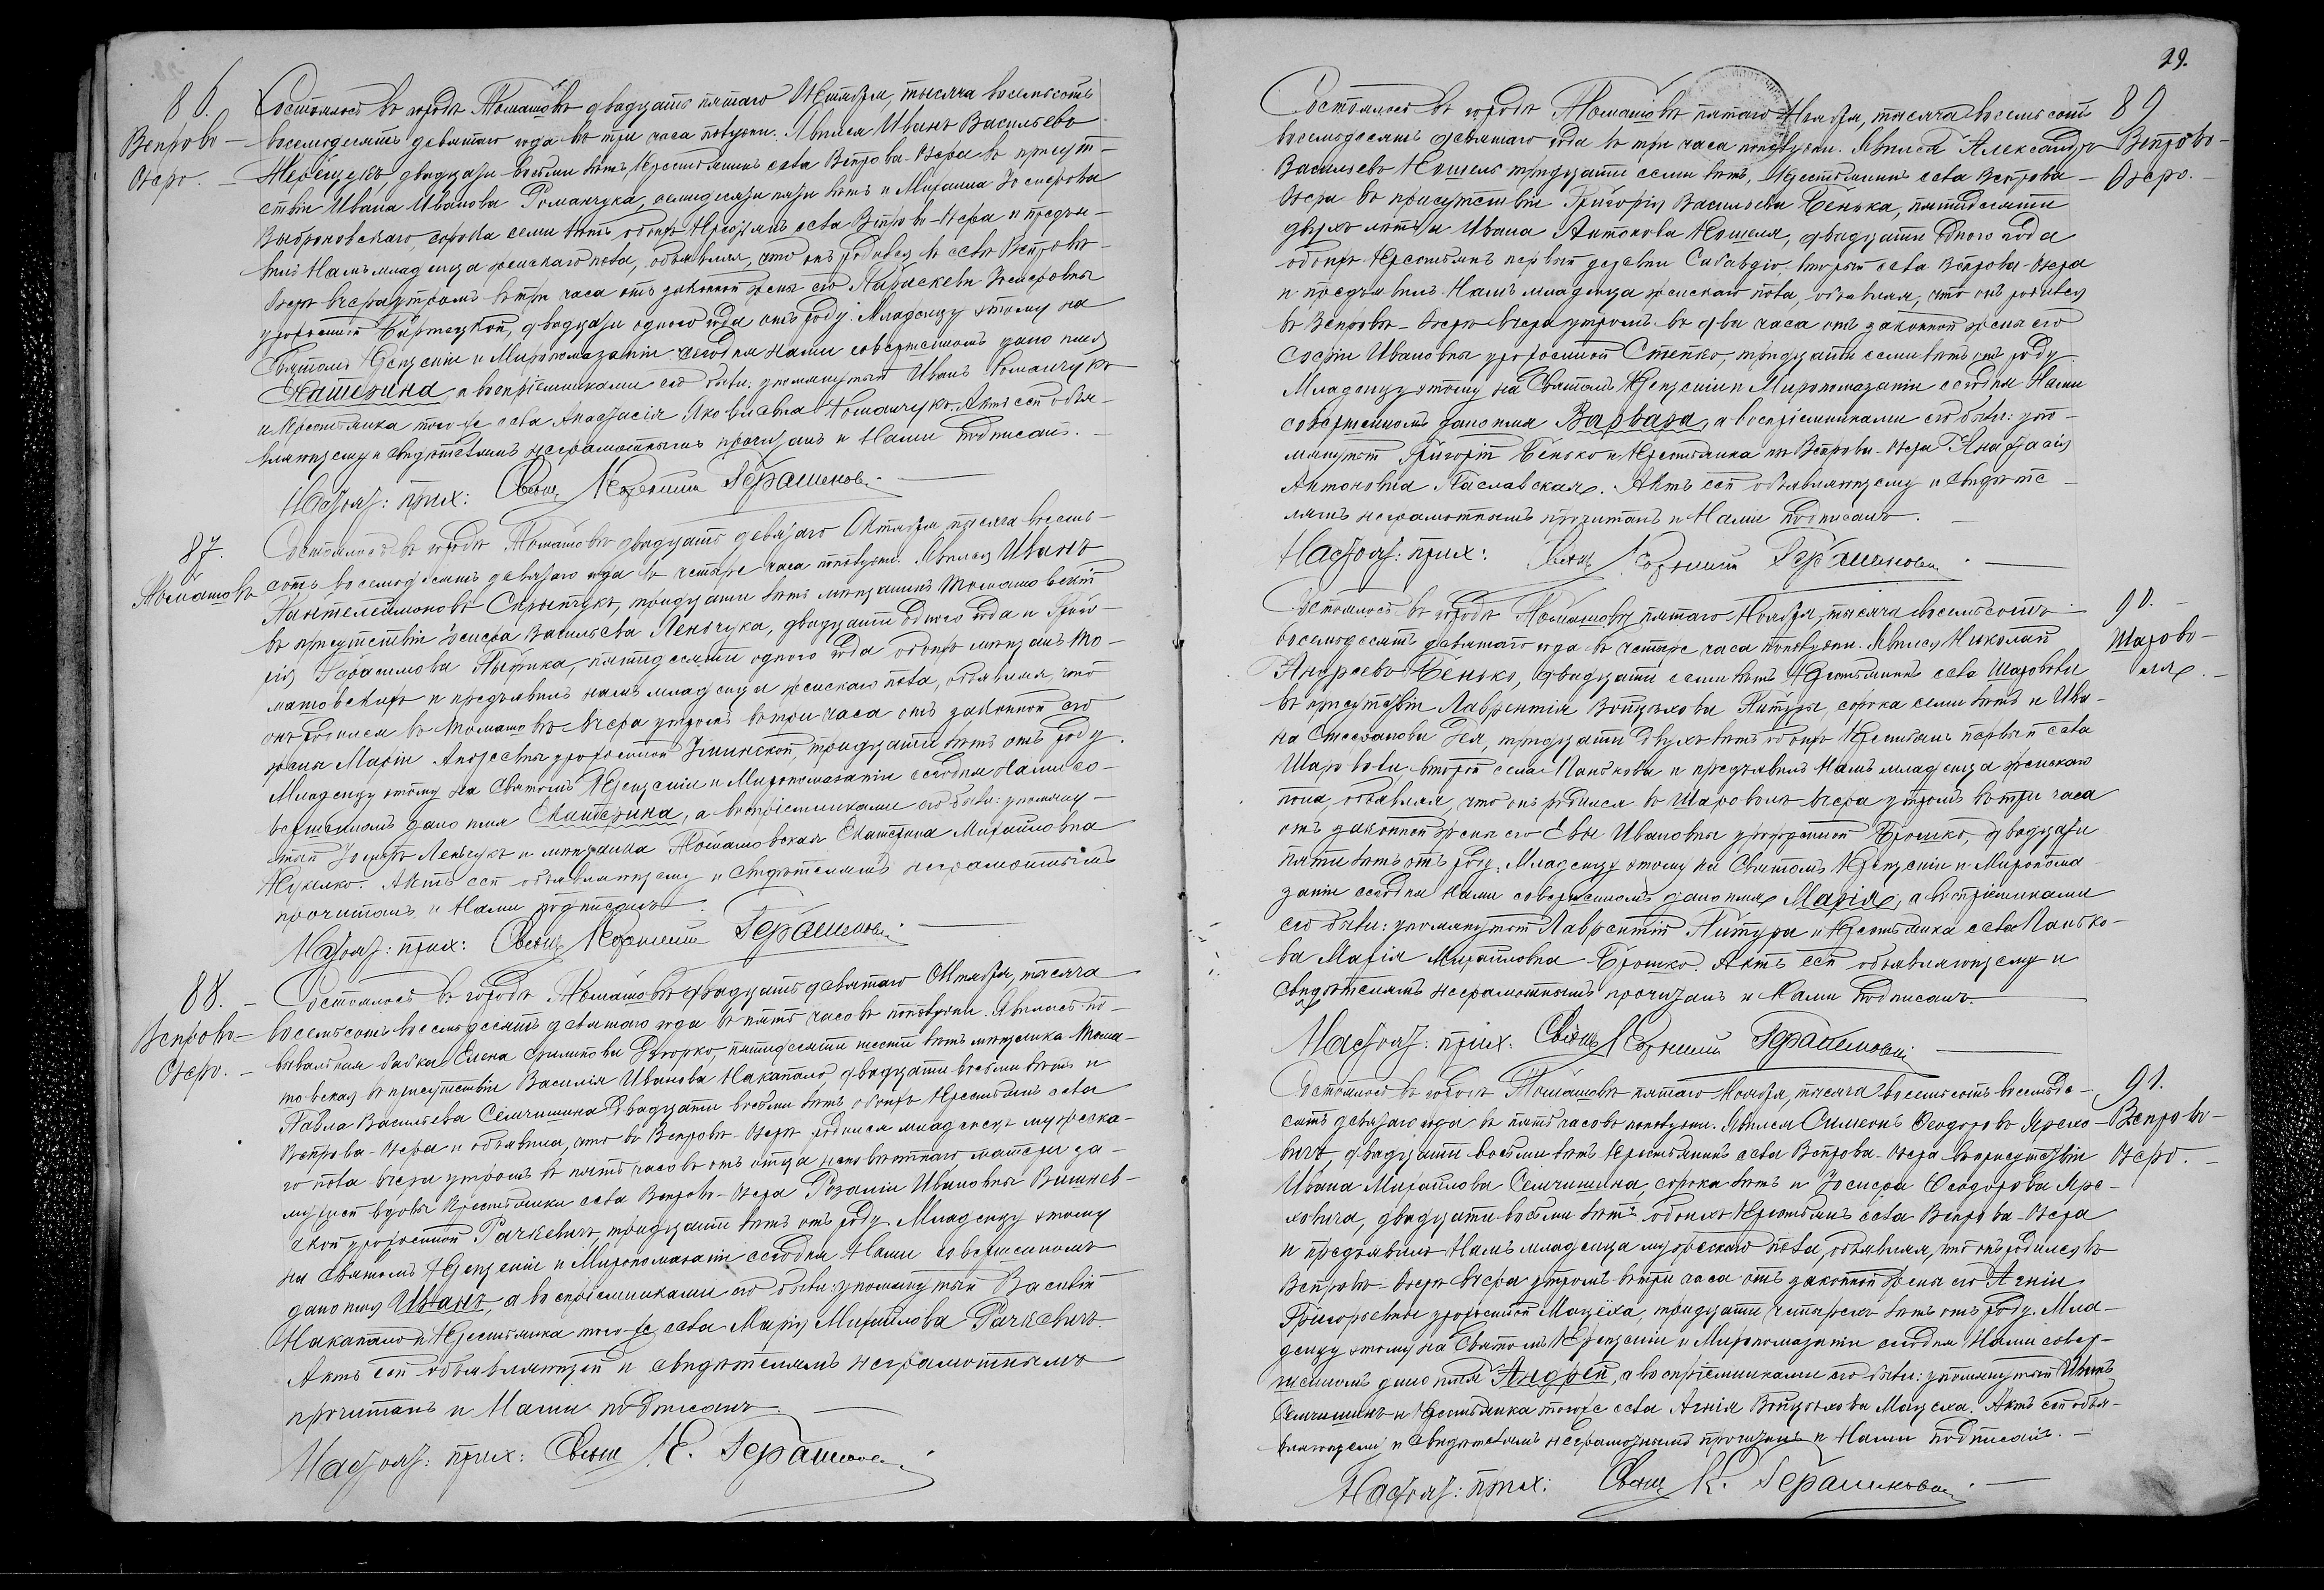 86.
Вепрово-
Озеро.
Состоялось въ городѣ Томашовѣ двадцать пятаго Октября, тысяча восемьсотъ
восемьдесятъ девятаго года въ три часа пополудни. Явился Иванъ Васильевъ
двадцати восьми лѣтъ, крестьянинъ села Вепрова-Озера въ присут-
ствіи Ивана Иванова Романчука, семидесяти пяти лѣтъ и Михаила Іосифова
Выбрановскаго, сорока семи лѣтъ обоихъ крестьянъ села Вепрово-Озера и предъя-
вилъ Намъ младенца женскаго пола, объявляя, что онъ родился въ селѣ Вепровѣ-
Озерѣ вчера утромъ въ три часа отъ законной жены его Параскевы Іосифовны
урожденной двадцати одного года отъ роду. Младенцу этому на
Святомъ Крещеніи и Миропомазаніи сегодня нами совершенномъ дано имя
Катерина, а воспріемниками его были: упомянутый Иванъ Романчукъ
и крестьянка того-же села Анастасія Яковлевна Романчукъ. Актъ сей объя-
вляющему и свидѣтелямъ неграмотнымъ прочитанъ и Нами подписанъ.
Настоят: прих: Свящ. Корнилій Герашенов
87.
Томашовъ
Состоялось въ городѣ Томашовѣ двадцать девятаго Октября тысяча восемь-
сотъ восемьдесятъ девятаго года въ четыре часа пополудни. Явился Иванъ
Пантелеймоновъ Скрыпчукъ, тридцати лѣтъ мѣщанинъ Томашовскій
въ присутствіи Іосифа Васильева Леньчука, двадцати одного года и Григо-
рія Герасимова пятидесяти одного года обоихъ мѣщанъ То-
машовскихъ и предъявилъ намъ младенца женскаго пола, объявляя, что
онъ родился въ Томашовѣ вчера утромъ въ три часа отъ законной его
жены Маріи Андреевны урожденной тридцати лѣтъ отъ роду.
Младенцу этому на Святомъ Крещеніи и Миропомазаніи сегодня Нами со-
вершенномъ дано имя Екатерина, а воспріемниками его были: упомяну-
тый Іосифъ Леньчукъ и мѣщанка Томашовская Екатерина Михайловна
Кукелко. Актъ сей объявляющему и свидѣтелямъ неграмотнымъ
прочитанъ и Нами подписанъ.
Настоят: прих: Свящ. Корнилій Герашенов
88.
Вепрово-
Озеро.
Состоялось въ городѣ Томашовѣ двадцать девятаго Октября, тысяча
восемьсотъ восемьдесятъ девятаго года въ пять часовъ пополудни. Явилась по-
вивальная бабка Елена Филипова Дзюрко, пятидесяти шести лѣтъ мѣщанка Тома-
шовская въ присутствіи Василія Иванова Накапало двадцати восьми лѣтъ и
Павла Васильева Семчишина двадцати восьми лѣтъ обоихъ крестьянъ села
Вепрова-Озера и объявила, что въ Вепровѣ-Озерѣ родился младенецъ мужеска-
го пола вчера утромъ въ пять часовъ отъ отца неизвѣстнаго, матери за-
мужней вдовы крестьянки села Вепрово-Озера Розаліи Ивановны Вишнев-
ской урожденной Рачкевичъ, тридцати лѣтъ отъ роду. Младенцу этому
на Святомъ Крещеніи и Миропомазаніи сегодня Нами совершенномъ
дано имя Иванъ, а воспріемниками его были: упомянутый Василій
Накапало и крестьянка того-же села Марія Михайлова Рачкевичъ.
Актъ сей объявляющей и свидѣтелямъ неграмотнымъ
прочитанъ и Нами подписанъ.
Настоят: прих: Свящ. К. Герашенов
29.
89
Вепрово-
Озеро.
Состоялось въ городѣ Томашовѣ пятаго Ноября, тысяча восемьсотъ
восемьдесятъ девятаго года въ три часа пополудни. Явился Александръ
Васильевъ Кошель тридцати семи лѣтъ, крестьянинъ села Вепрова-
Озера въ присутствіи Григорія Васильева Бенька, пятидесяти
двухъ лѣтъ и Ивана Антонова Кошеля, двадцати одного года
обоихъ крестьянъ первый деревни второй села Вепрова-Озера
и предъявилъ Намъ младенца женскаго пола, объявляя, что онъ родился
въ Вепровѣ-Озерѣ вчера утромъ въ два часа отъ законной жены его
Софіи Ивановны урожденной Стетко, тридцати семи лѣтъ отъ роду.
Младенцу этому на Святомъ Крещеніи и Миропомазаніи сегодня Нами
совершенномъ дано имя Варвара, а воспріемниками его были: упо-
мянутый Григорій Бенько и крестьянка изъ Вепрова-Озера Анастасія
Антоновна Паславская. Актъ сей объявляющему и свидѣте-
лямъ неграмотнымъ прочитанъ и Нами подписанъ.
Настоят: прих: Свящ. Корнилій Герашенов
90.
Шарово-
ля.
Состоялось въ городѣ Томашовѣ пятаго Ноября, тысяча восемьсотъ
восемьдесятъ девятаго года въ четыре часа пополудни. Явился Николай
Андреевъ Бенько, двадцати семи лѣтъ крестьянинъ села Шароволи
въ присутствіи Лаврентія Войцѣхова Питуры, сорока семи лѣтъ и Ива-
на Стефанова тридцати двухъ лѣтъ обоихъ крестьянъ первый села
Шароволи, второй села Панькова и предъявилъ Намъ младенца женскаго
пола, объявляя, что онъ родился въ Шароволѣ вчера утромъ въ три часа
отъ законной жены его Евы Ивановны урожденной Брошко, двадцати
пяти лѣтъ отъ роду. Младенцу этому на Святомъ Крещеніи и Миропома-
заніи сегодня Нами совершенномъ дано имя Марія, а воспріемниками
его были: упомянутый Лаврентій Питура и крестьянка села Панько-
ва Марія Михайловна Брошко. Актъ сей объявляющему и
свидѣтелямъ неграмотнымъ прочитанъ и Нами подписанъ.
Настоят: прих: Свящ. Корнилій Герашенов
91.
Вепрово-
Озеро.
Состоялось въ городѣ Томашовѣ пятаго Ноября, тысяча восемьсотъ восемьде-
сятъ девятаго года въ пять часовъ пополудни. Явился Симеонъ Ѳеодоровъ Ярехо-
вичъ, двадцати восьми лѣтъ крестьянинъ села Вепрова-Озера въ присутствіи
Ивана Михайлова Семчишина, сорока лѣтъ и Іосифа Ѳеодорова Яре-
ховича, двадцати восьми лѣтъ обоихъ крестьянъ села Вепрова-Озера
и предъявилъ Намъ младенца мужескаго пола, объявляя, что онъ родился въ
Вепровѣ-Озерѣ вчера утромъ въ три часа отъ законной жены его Агніи
Григорьевны урожденной Мацеха, тридцати четырехъ лѣтъ отъ роду. Мла-
денцу этому на Святомъ Крещеніи и Миропомазаніи сегодня Нами совер-
шенномъ дано имя Андрей, а воспріемниками его были: упомянутый Иванъ
Семчишинъ и крестьянка тогоже села Агнія Войцѣхова Мацеха. Актъ сей объя-
вляющему и свидѣтелямъ неграмотнымъ прочитанъ и Нами подписанъ.
Настоят: прих: Свящ. К. Герашенов